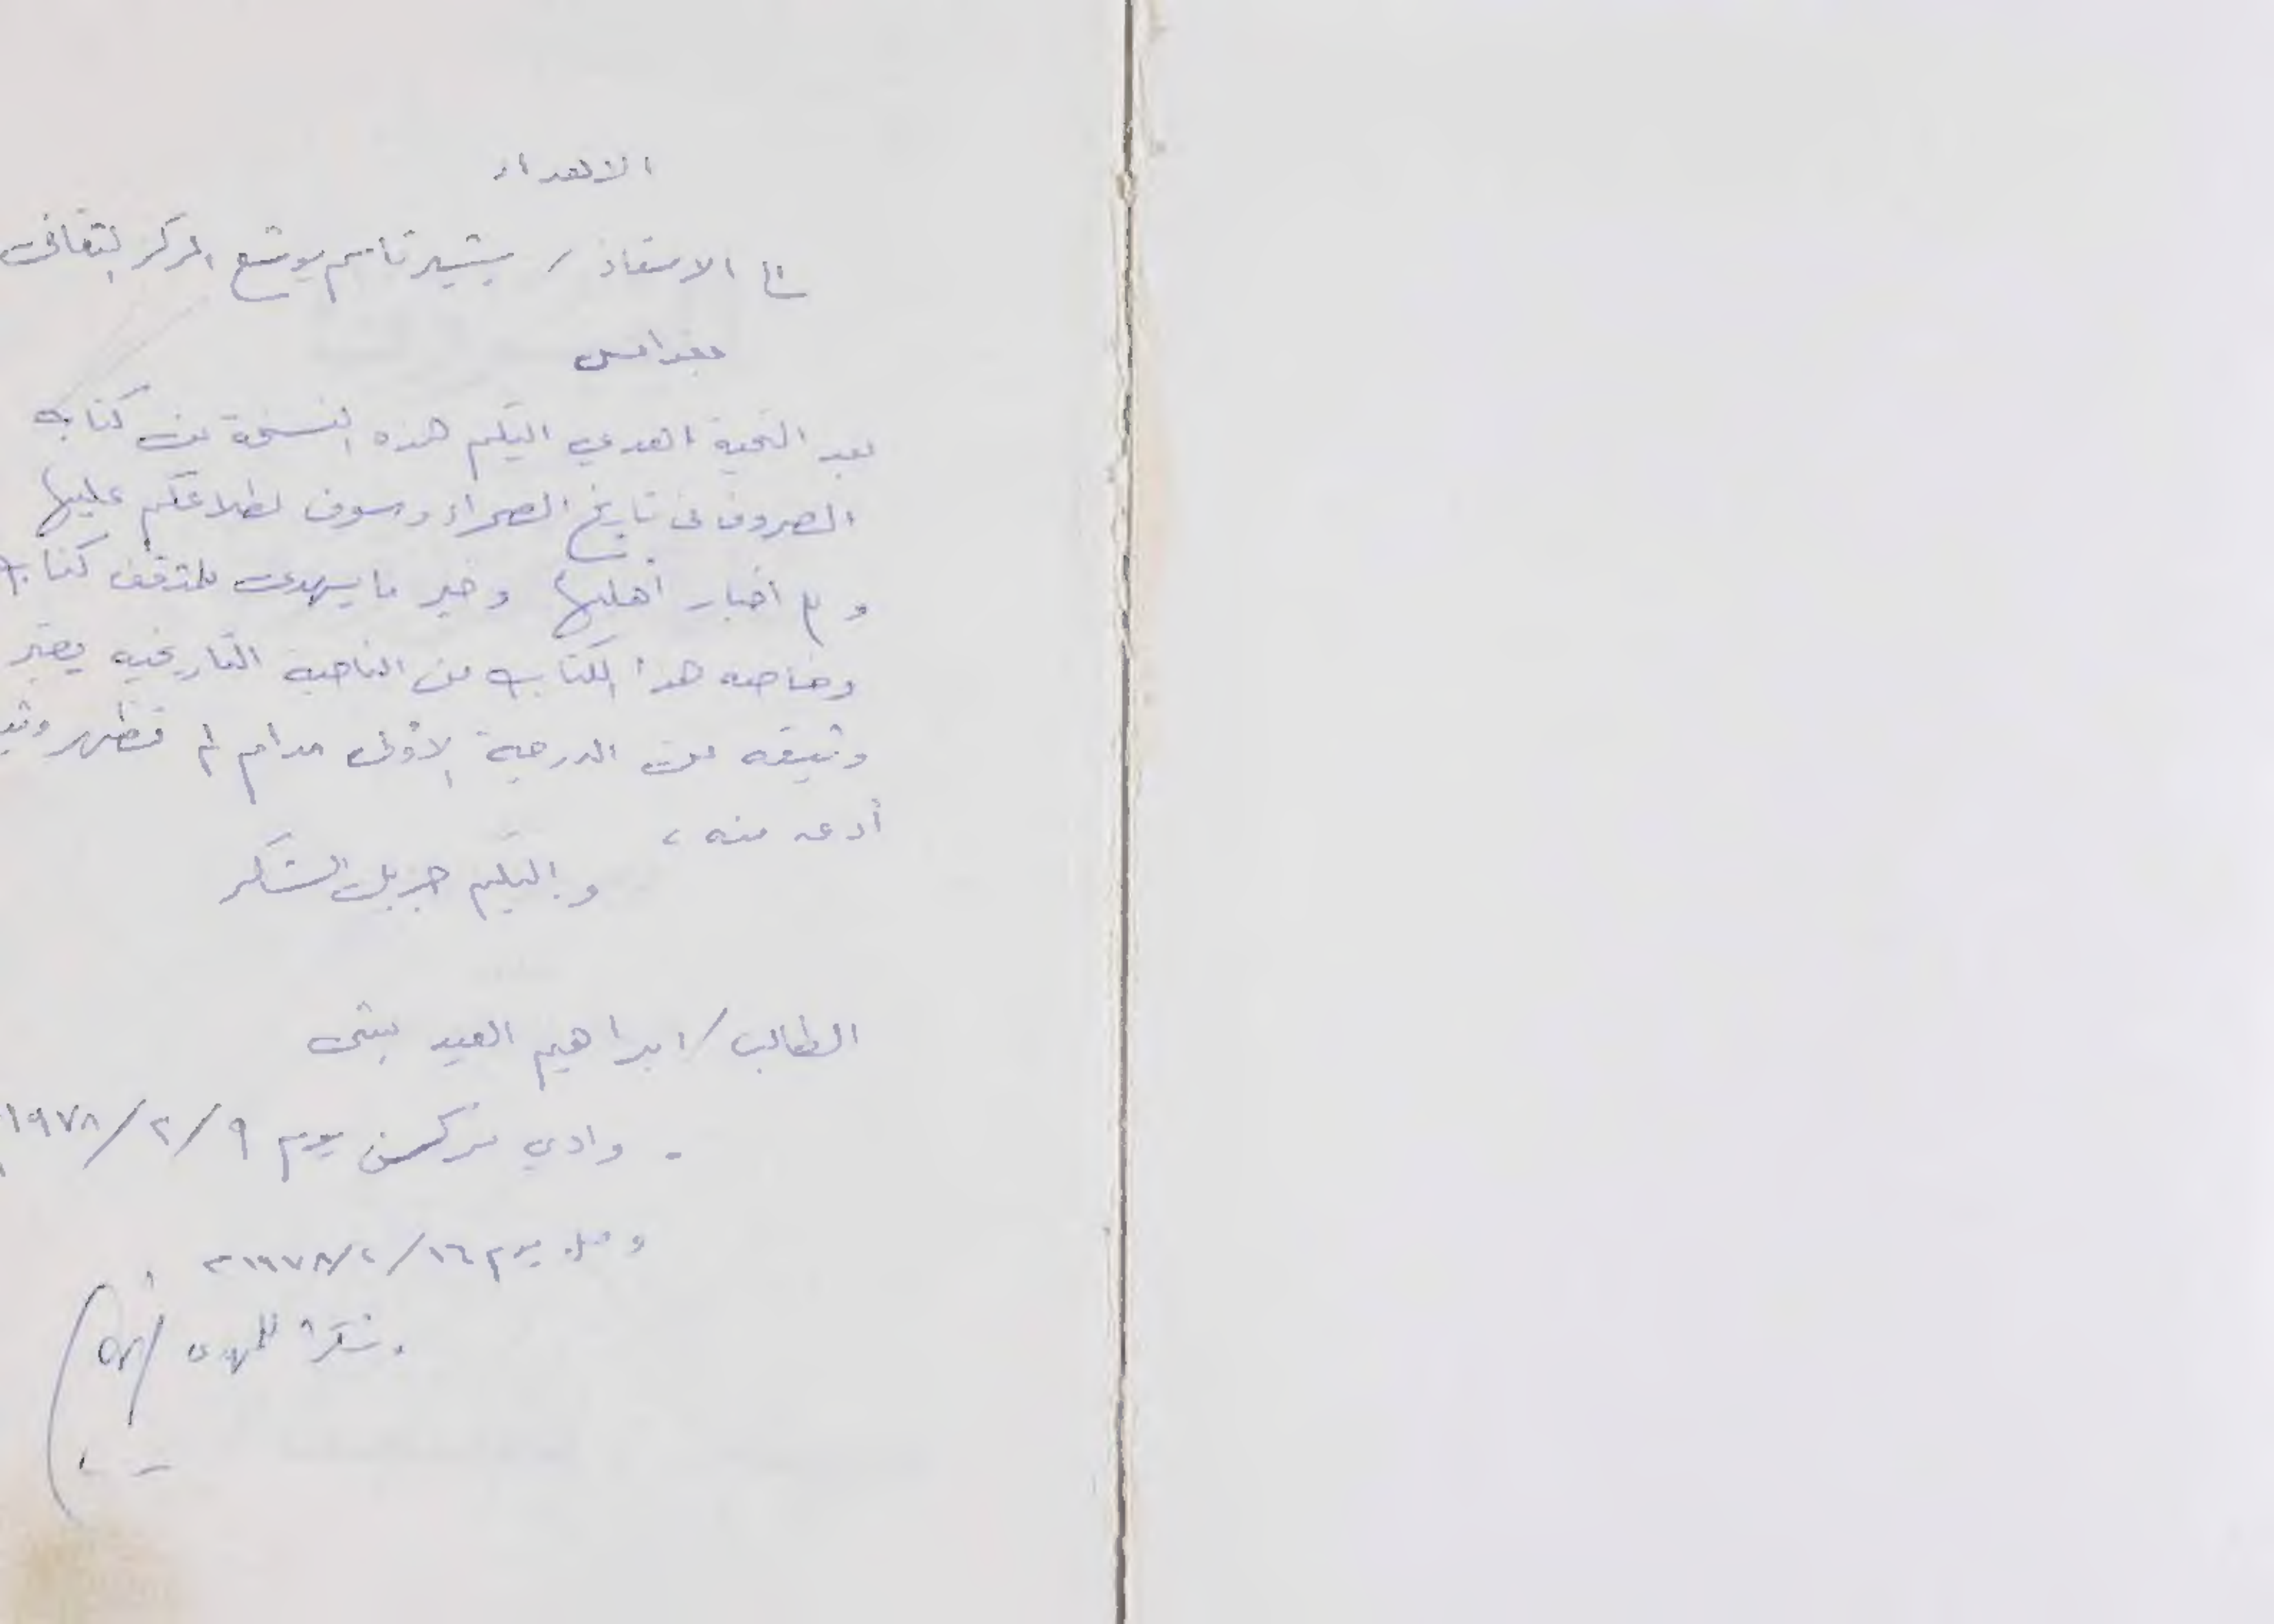 الاهداء
الى الاستاذ / بشير قاسم يوشع المركز الثقافى
بغدامس
بعد التحية اهدي اليكم هذه النسخة من كتاب
الصروف فى تاريخ الصحراء وسوف لطلاعكم عليها
و اخبار أهليها وخير ما يهدى للمثقف كتاب
وخاصه هذا الكتاب من الناحية التاريخيه يعتبر
وثيقه من الدرجة الأولى مدام لم تظهر
منه ،
و اليكم جزيل الشكر
الطالب / ابراهيم العيد بشى
. وادي يوم ٩ / ٢ / ١٩٧٨
وصل يوم ١٦ / ٢ / ١٩٧٨
وشكرا للمهدى